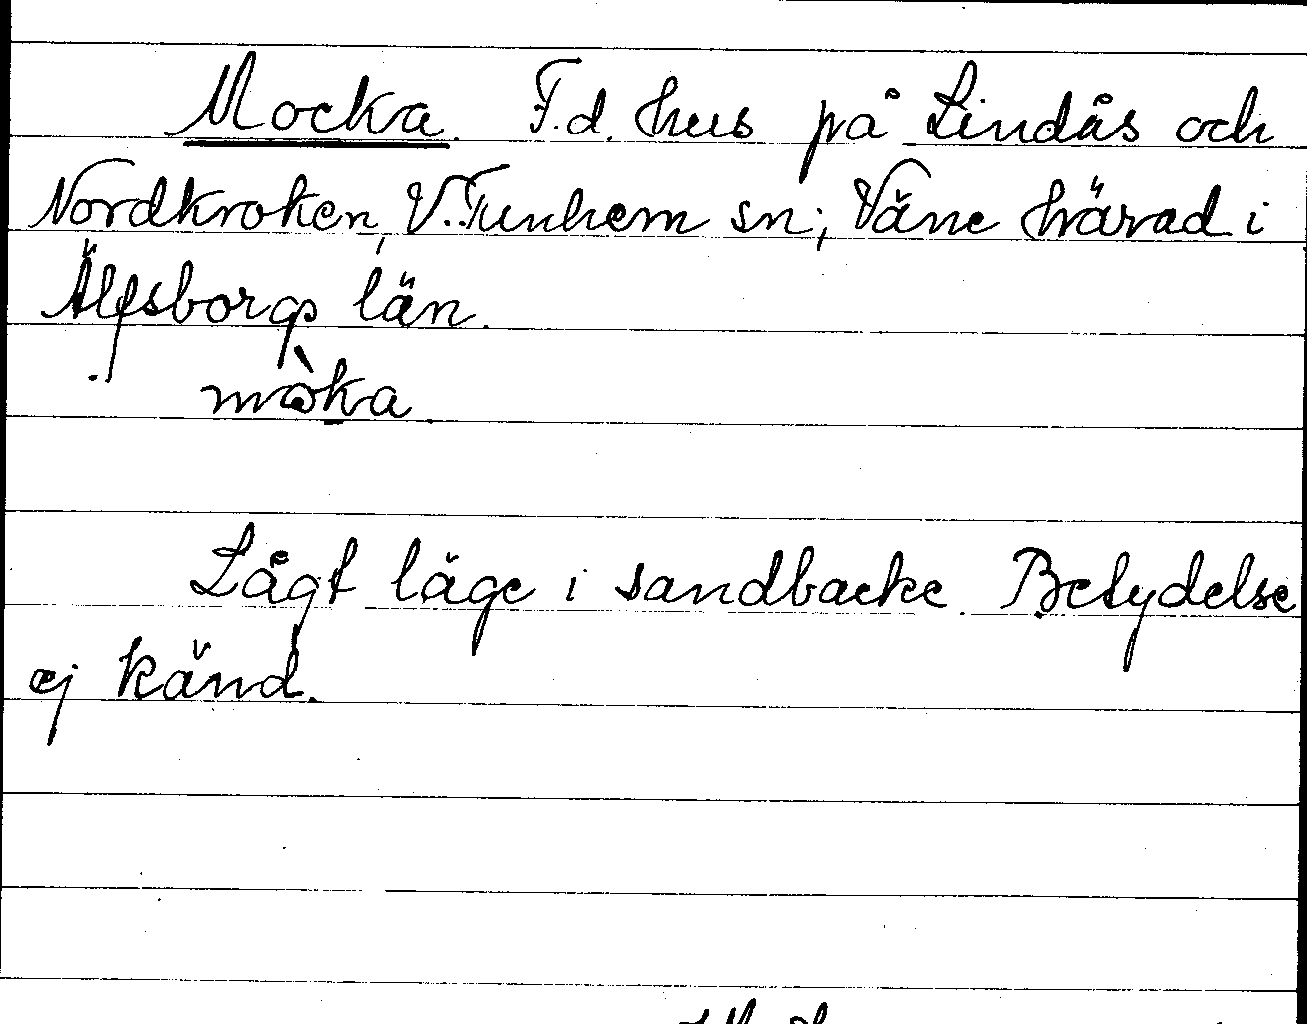 Mocka. F.d. hus på Lindås och
Nordkroken, V. Tunhem sn; Väne härad i
Älfsborgs län.
mòka
Lågt läge i sandbacke. Betydelse
ej känd.